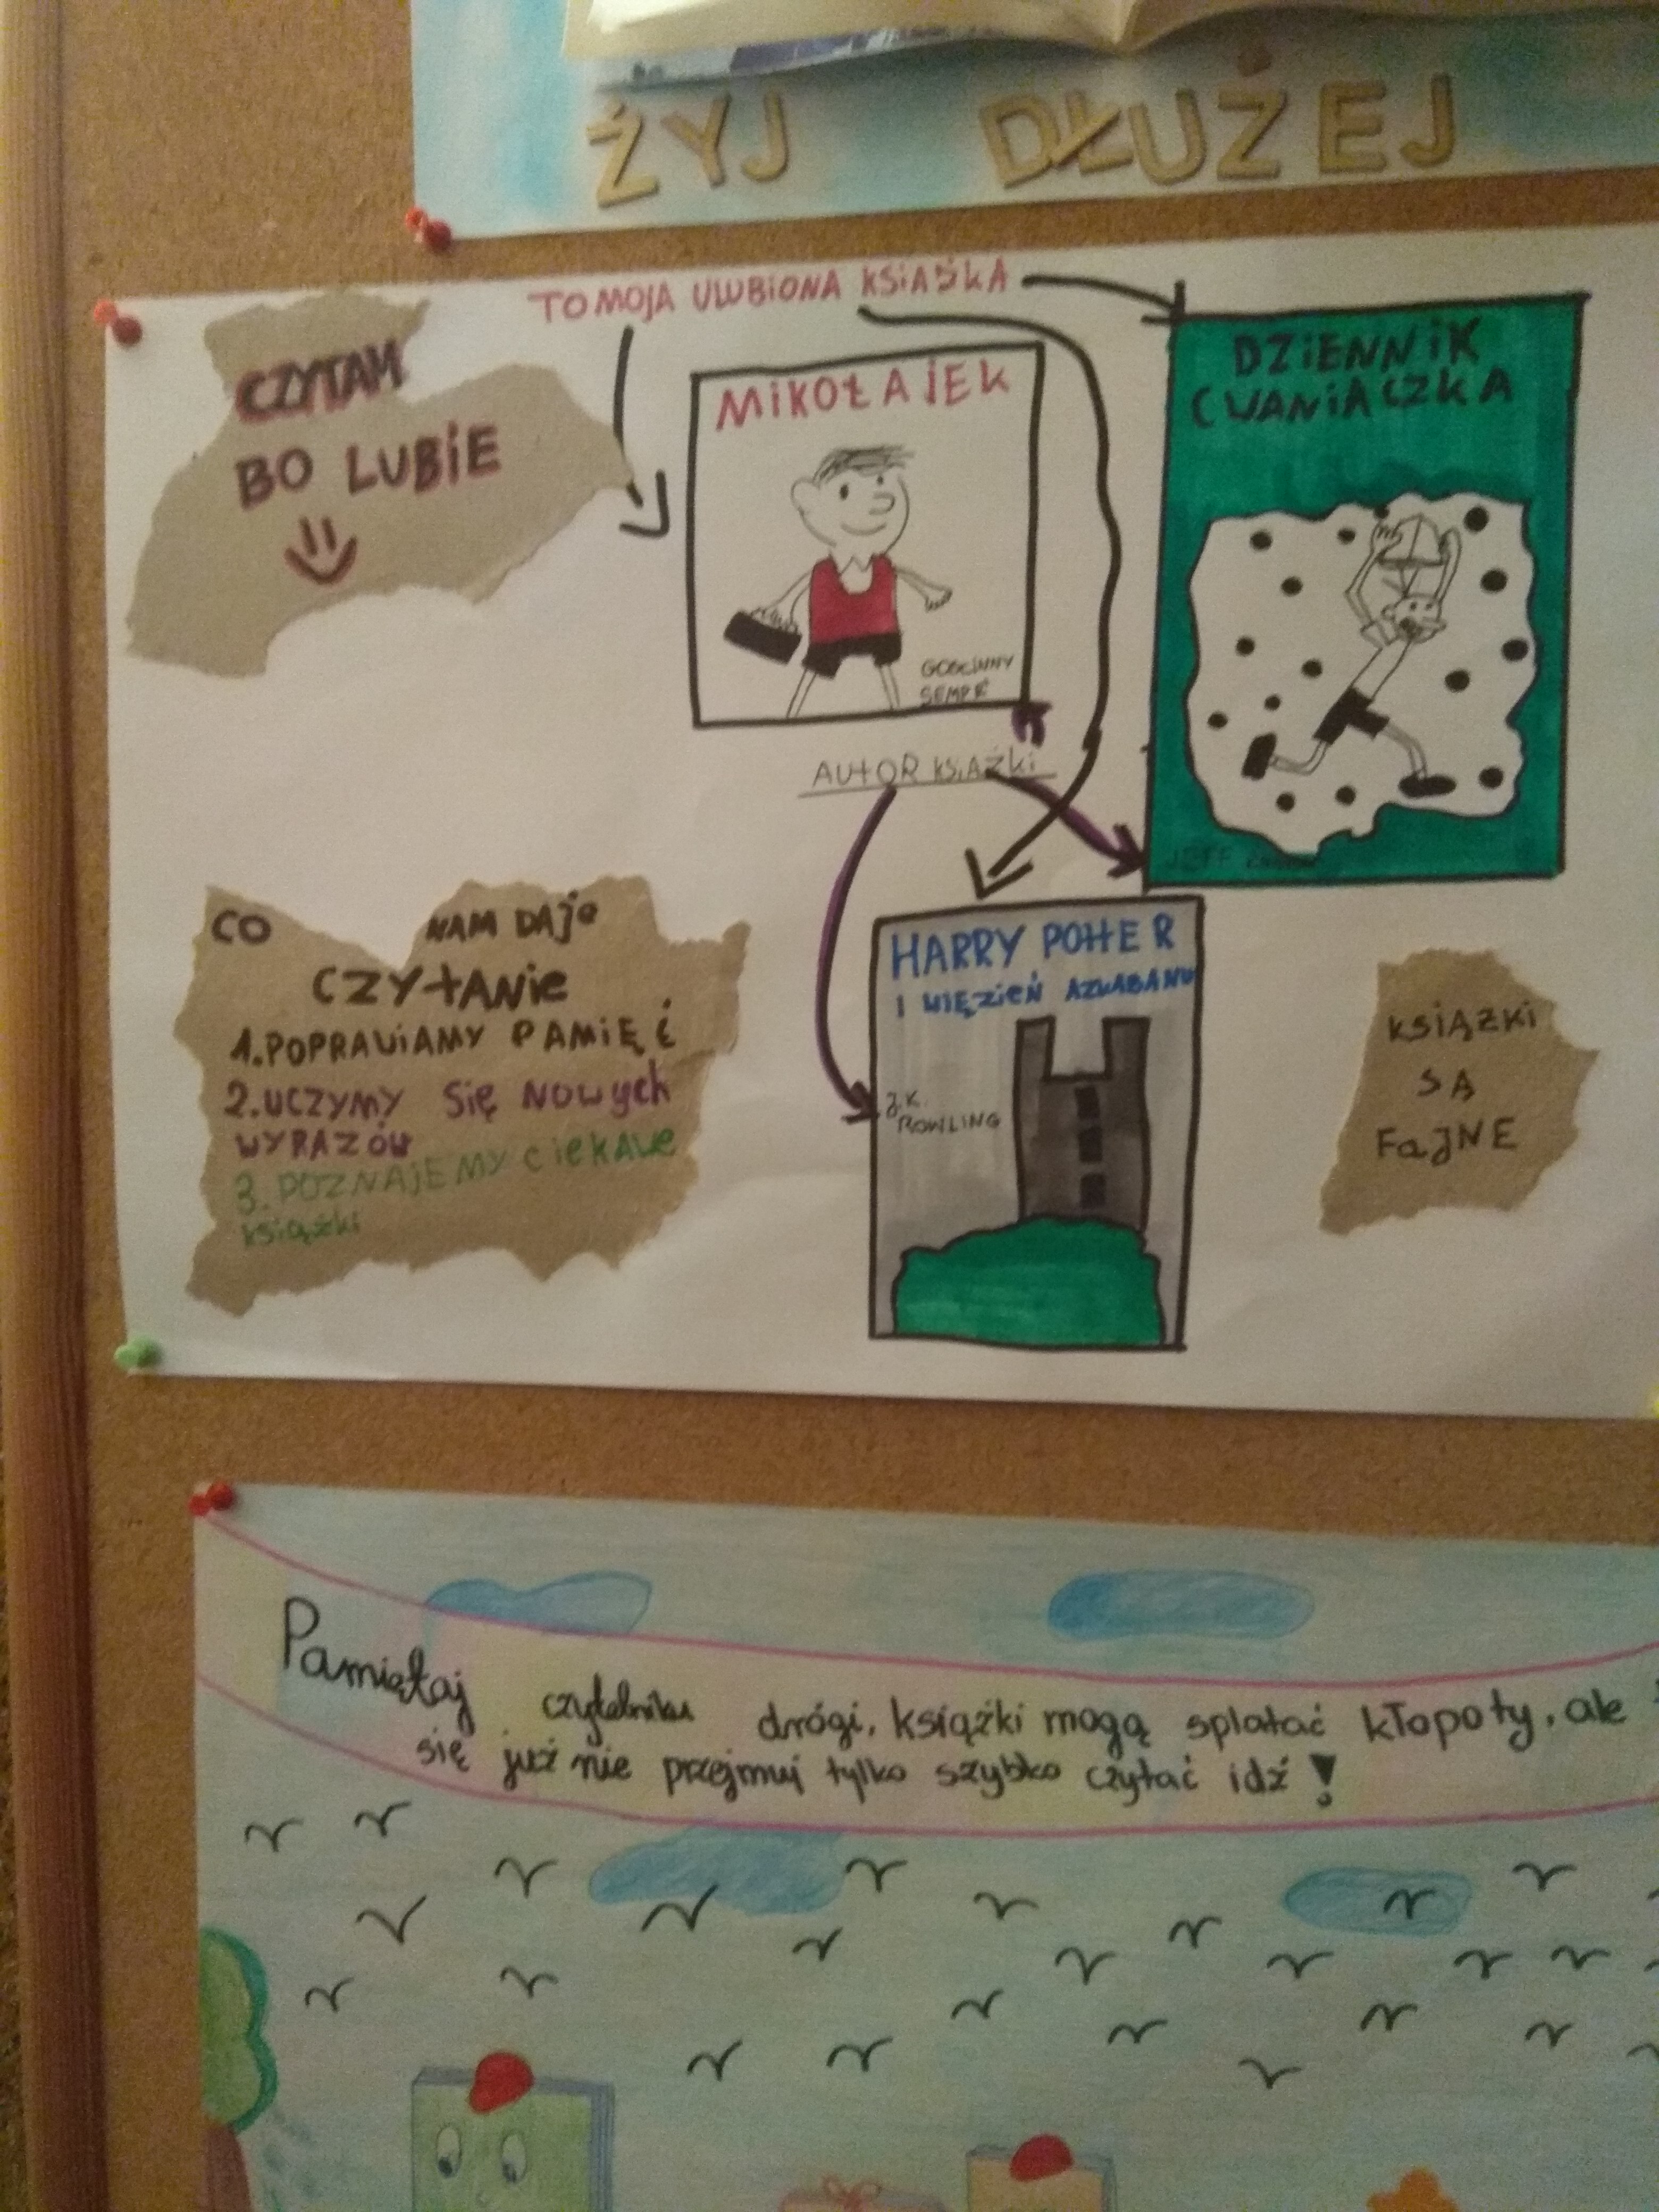 ŻYJ DŁUŻEJ
TO MOJA ULUBIONA KSIĄŻKA
CZYTAM
BO LUBIE
MIKOŁAJEK
GOSCINNY
SEMPE
DZIENNIK
CWANIACZKA
JEFF
AUTOR KSIĄŻKI
CO NAM DAJE
CZYTANIE
1. POPRAWIAMY PAMIĘĆ
2. UCZYMY SIĘ NOWYCH
WYRAZÓW
3. POZNAJEMY CIEKAWE
KSIĄŻKI
HARRY POTTER
I WIĘZIEŃ AZKABANU
J.K.
ROWLING
KSIĄZKI
SĄ
FAJNE
Pamiętaj czytelniku drógi, książki mogą splatać kłopoty, ale
się już nie przejmuj tylko szybko czytać idź!